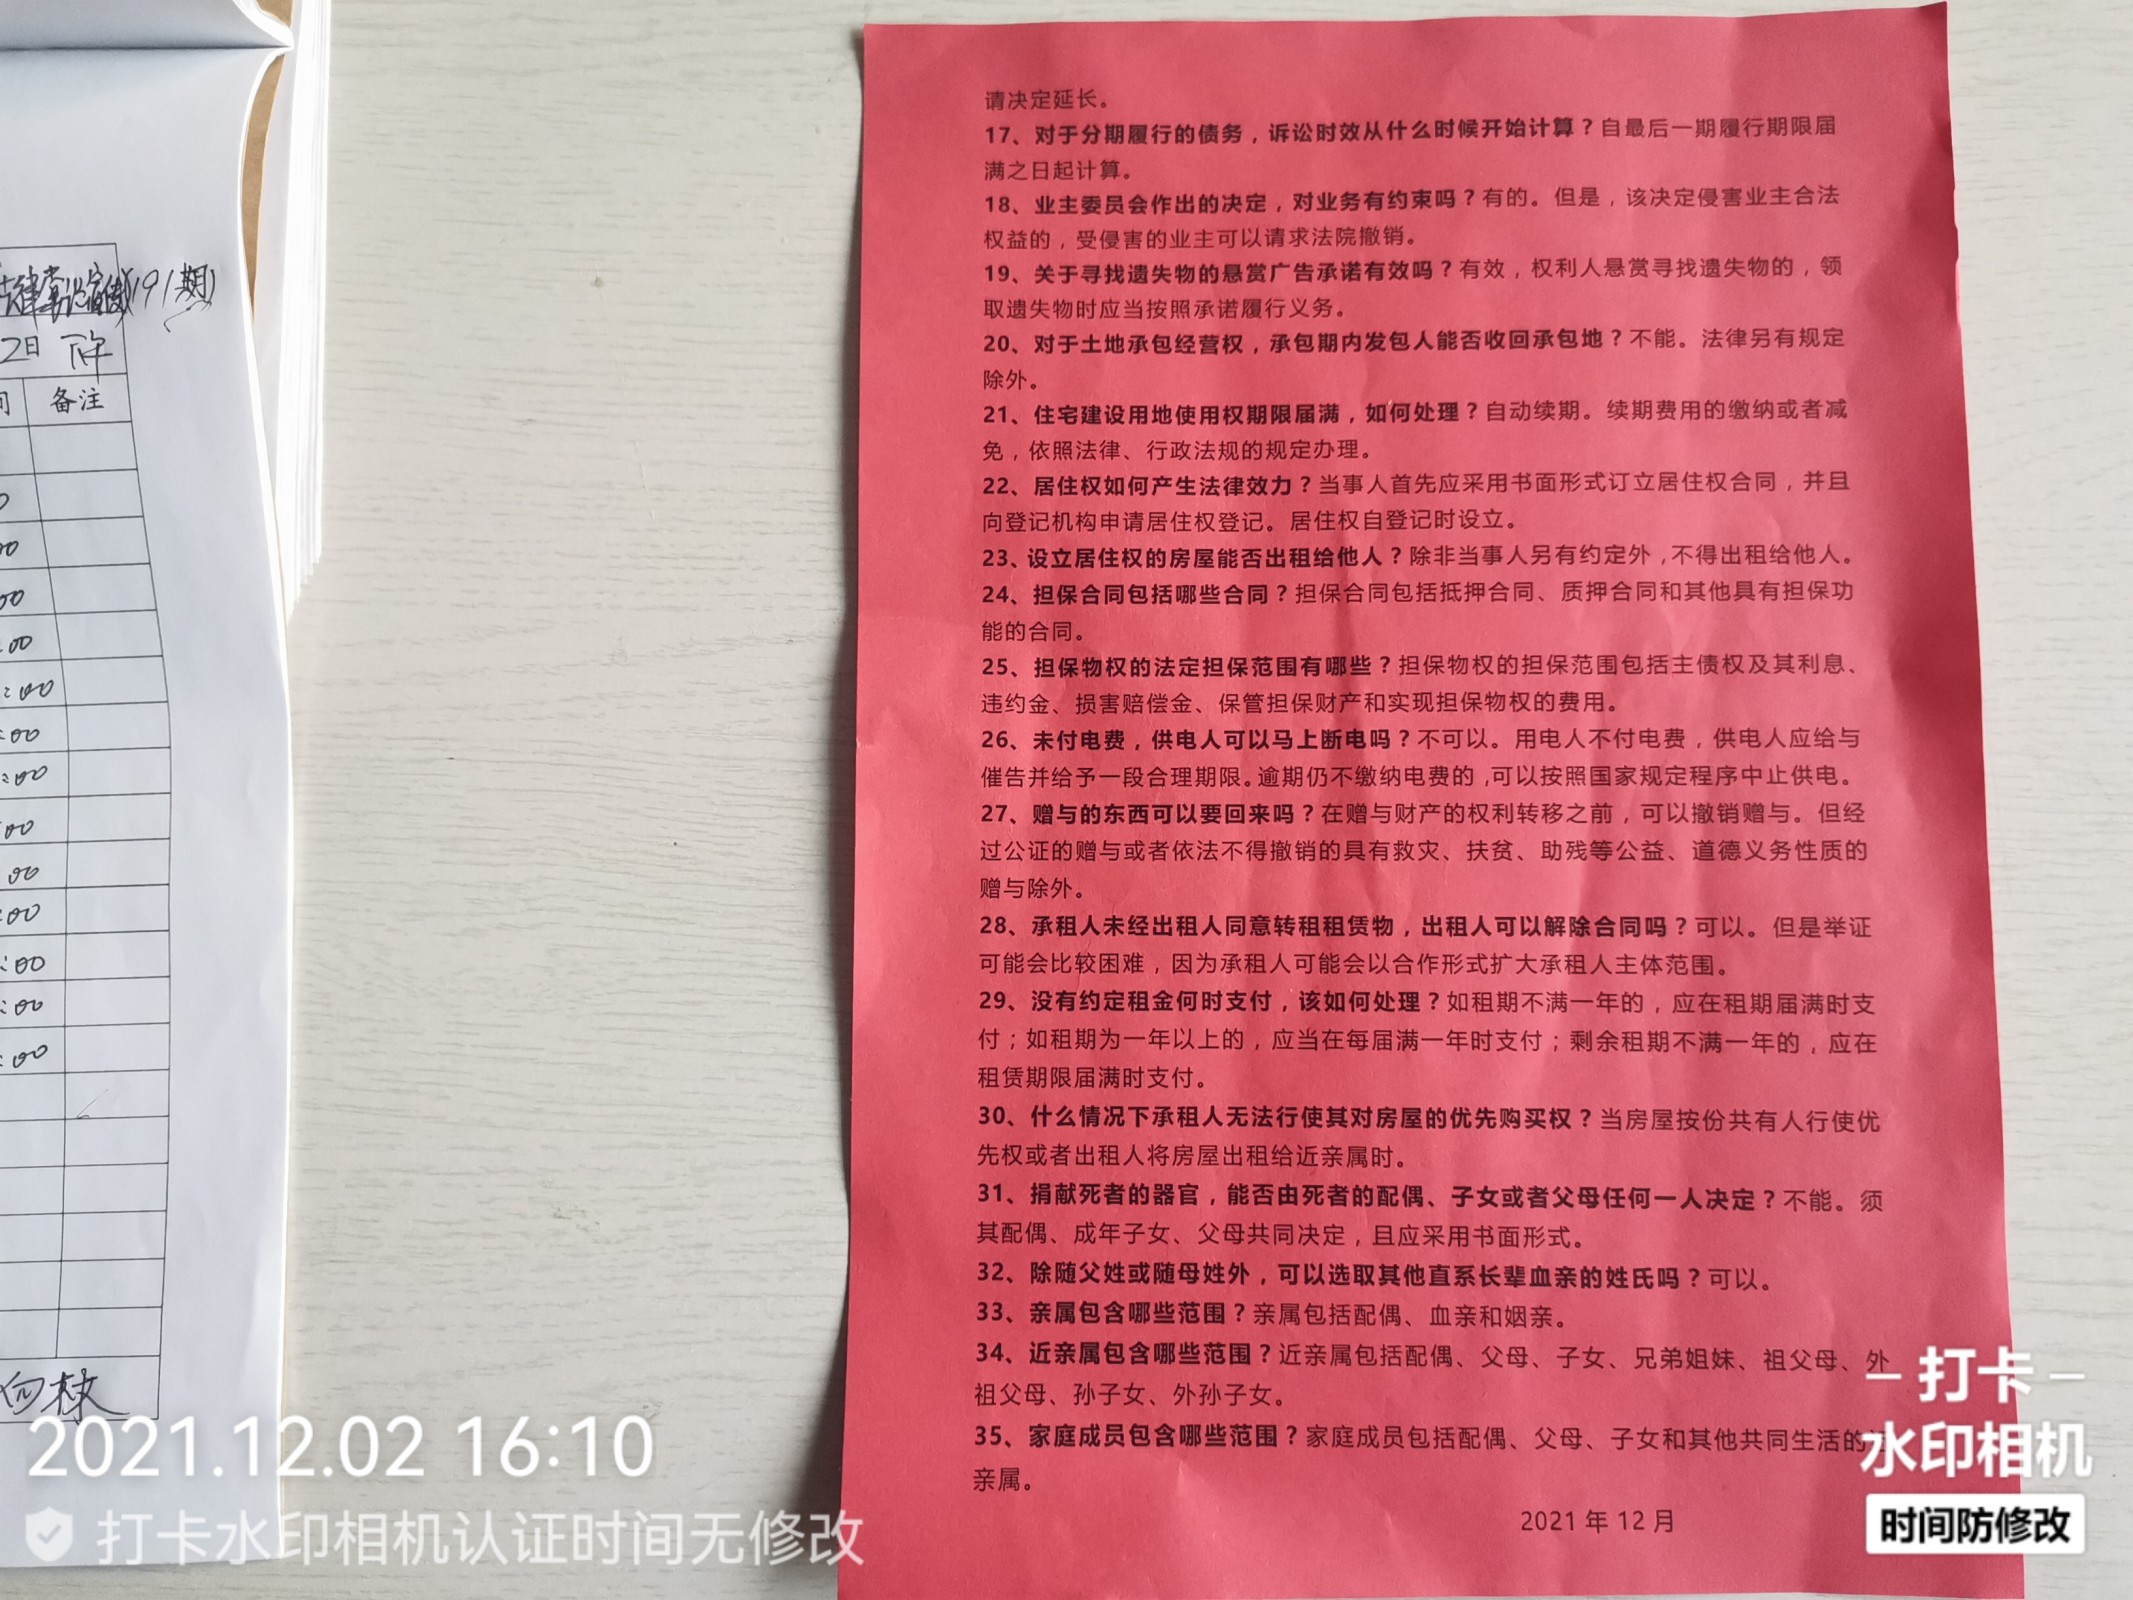 (191期)
2日 下午
备注
00
00
00
:00
:00
:00
:00
00
00
:00
:00
:00
:00
请决定延长。
17、对于分期履行的债务，诉讼时效从什么时候开始计算？自最后一期履行期限届
满之日起计算。
18、业主委员会作出的决定，对业务有约束吗？有的。但是，该决定侵害业主合法
权益的，受侵害的业主可以请求法院撤销。
19、关于寻找遗失物的悬赏广告承诺有效吗？有效，权利人悬赏寻找遗失物的，领
取遗失物时应当按照承诺履行义务。
20、对于土地承包经营权，承包期内发包人能否收回承包地？不能。法律另有规定
除外。
21、住宅建设用地使用权期限届满，如何处理？自动续期。续期费用的缴纳或者减
免，依照法律、行政法规的规定办理。
22、居住权如何产生法律效力？当事人首先应采用书面形式订立居住权合同，并且
向登记机构申请居住权登记。居住权自登记时设立。
23、设立居住权的房屋能否出租给他人？除非当事人另有约定外，不得出租给他人。
24、担保合同包括哪些合同？担保合同包括抵押合同、质押合同和其他具有担保功
能的合同。
25、担保物权的法定担保范围有哪些？担保物权的担保范围包括主债权及其利息、
违约金、损害赔偿金、保管担保财产和实现担保物权的费用。
26、未付电费，供电人可以马上断电吗？不可以。用电人不付电费，供电人应给与
催告并给予一段合理期限。逾期仍不缴纳电费的，可以按照国家规定程序中止供电。
27、赠与的东西可以要回来吗？在赠与财产的权利转移之前，可以撤销赠与。但经
过公证的赠与或者依法不得撤销的具有救灾、扶贫、助残等公益、道德义务性质的
赠与除外。
28、承租人未经出租人同意转租租赁物，出租人可以解除合同吗？可以。但是举证
可能会比较困难，因为承租人可能会以合作形式扩大承租人主体范围。
29、没有约定租金何时支付，该如何处理？如租期不满一年的，应在租期届满时支
付；如租期为一年以上的，应当在每届满一年时支付；剩余租期不满一年的，应在
租赁期限届满时支付。
30、什么情况下承租人无法行使其对房屋的优先购买权？当房屋按份共有人行使优
先权或者出租人将房屋出租给近亲属时。
31、捐献死者的器官，能否由死者的配偶、子女或者父母任何一人决定？不能。须
其配偶、成年子女、父母共同决定，且应采用书面形式。
32、除随父姓或随母姓外，可以选取其他直系长辈血亲的姓氏吗？可以。
33、亲属包含哪些范围？亲属包括配偶、血亲和姻亲。
34、近亲属包含哪些范围？近亲属包括配偶、父母、子女、兄弟姐妹、祖父母、外
祖父母、孙子女、外孙子女。
35、家庭成员包含哪些范围？家庭成员包括配偶、父母、子女和其他共同生活的
亲属。
2021 年 12 月
2021.12.02 16:10
打卡水印相机认证时间无修改
打卡
水印相机
时间防修改